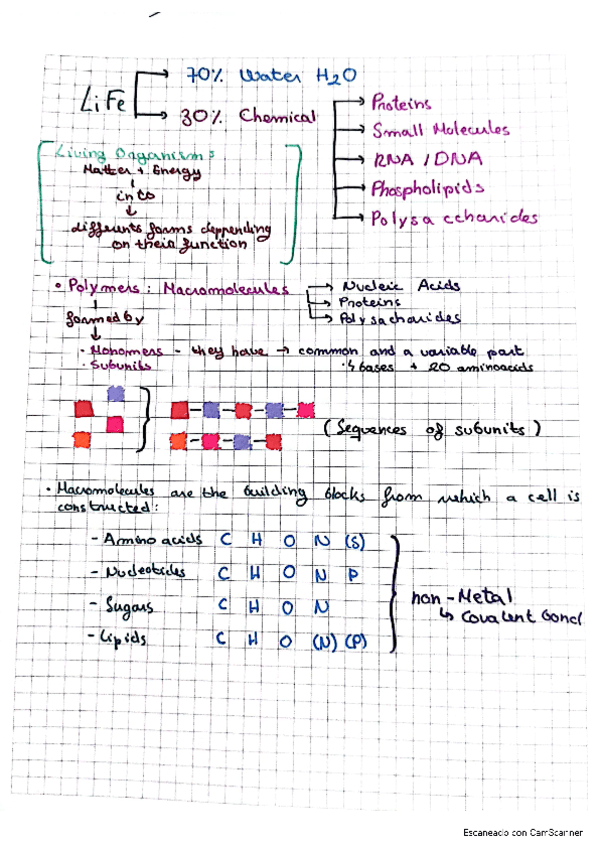 70% Water H2O
LiFe
30% Chemical
Proteins
Small Molecules
RNA / DNA
Phospholipids
Polysacchanides
Living Organism:
Matter + Energy
into
differents forms deppending
on their function
• Polymers: Macromolecules
Nucleic Acids
Proteins
Polysacharides
formed by
· Monomers - they have → common and a variable part
· Subunits
· 4 bases + 20 aminoacids
(Sequences of subunits)
· Macromolecules are the building blocks from which a cell is
constructed:
- Amino acids C H O N (S)
- Nucleotides C H O N P
- Sugars C H O N
- Lipids C H O (N) (P)
non-Metal
↳ Covalent bond
Escaneado con CamScanner